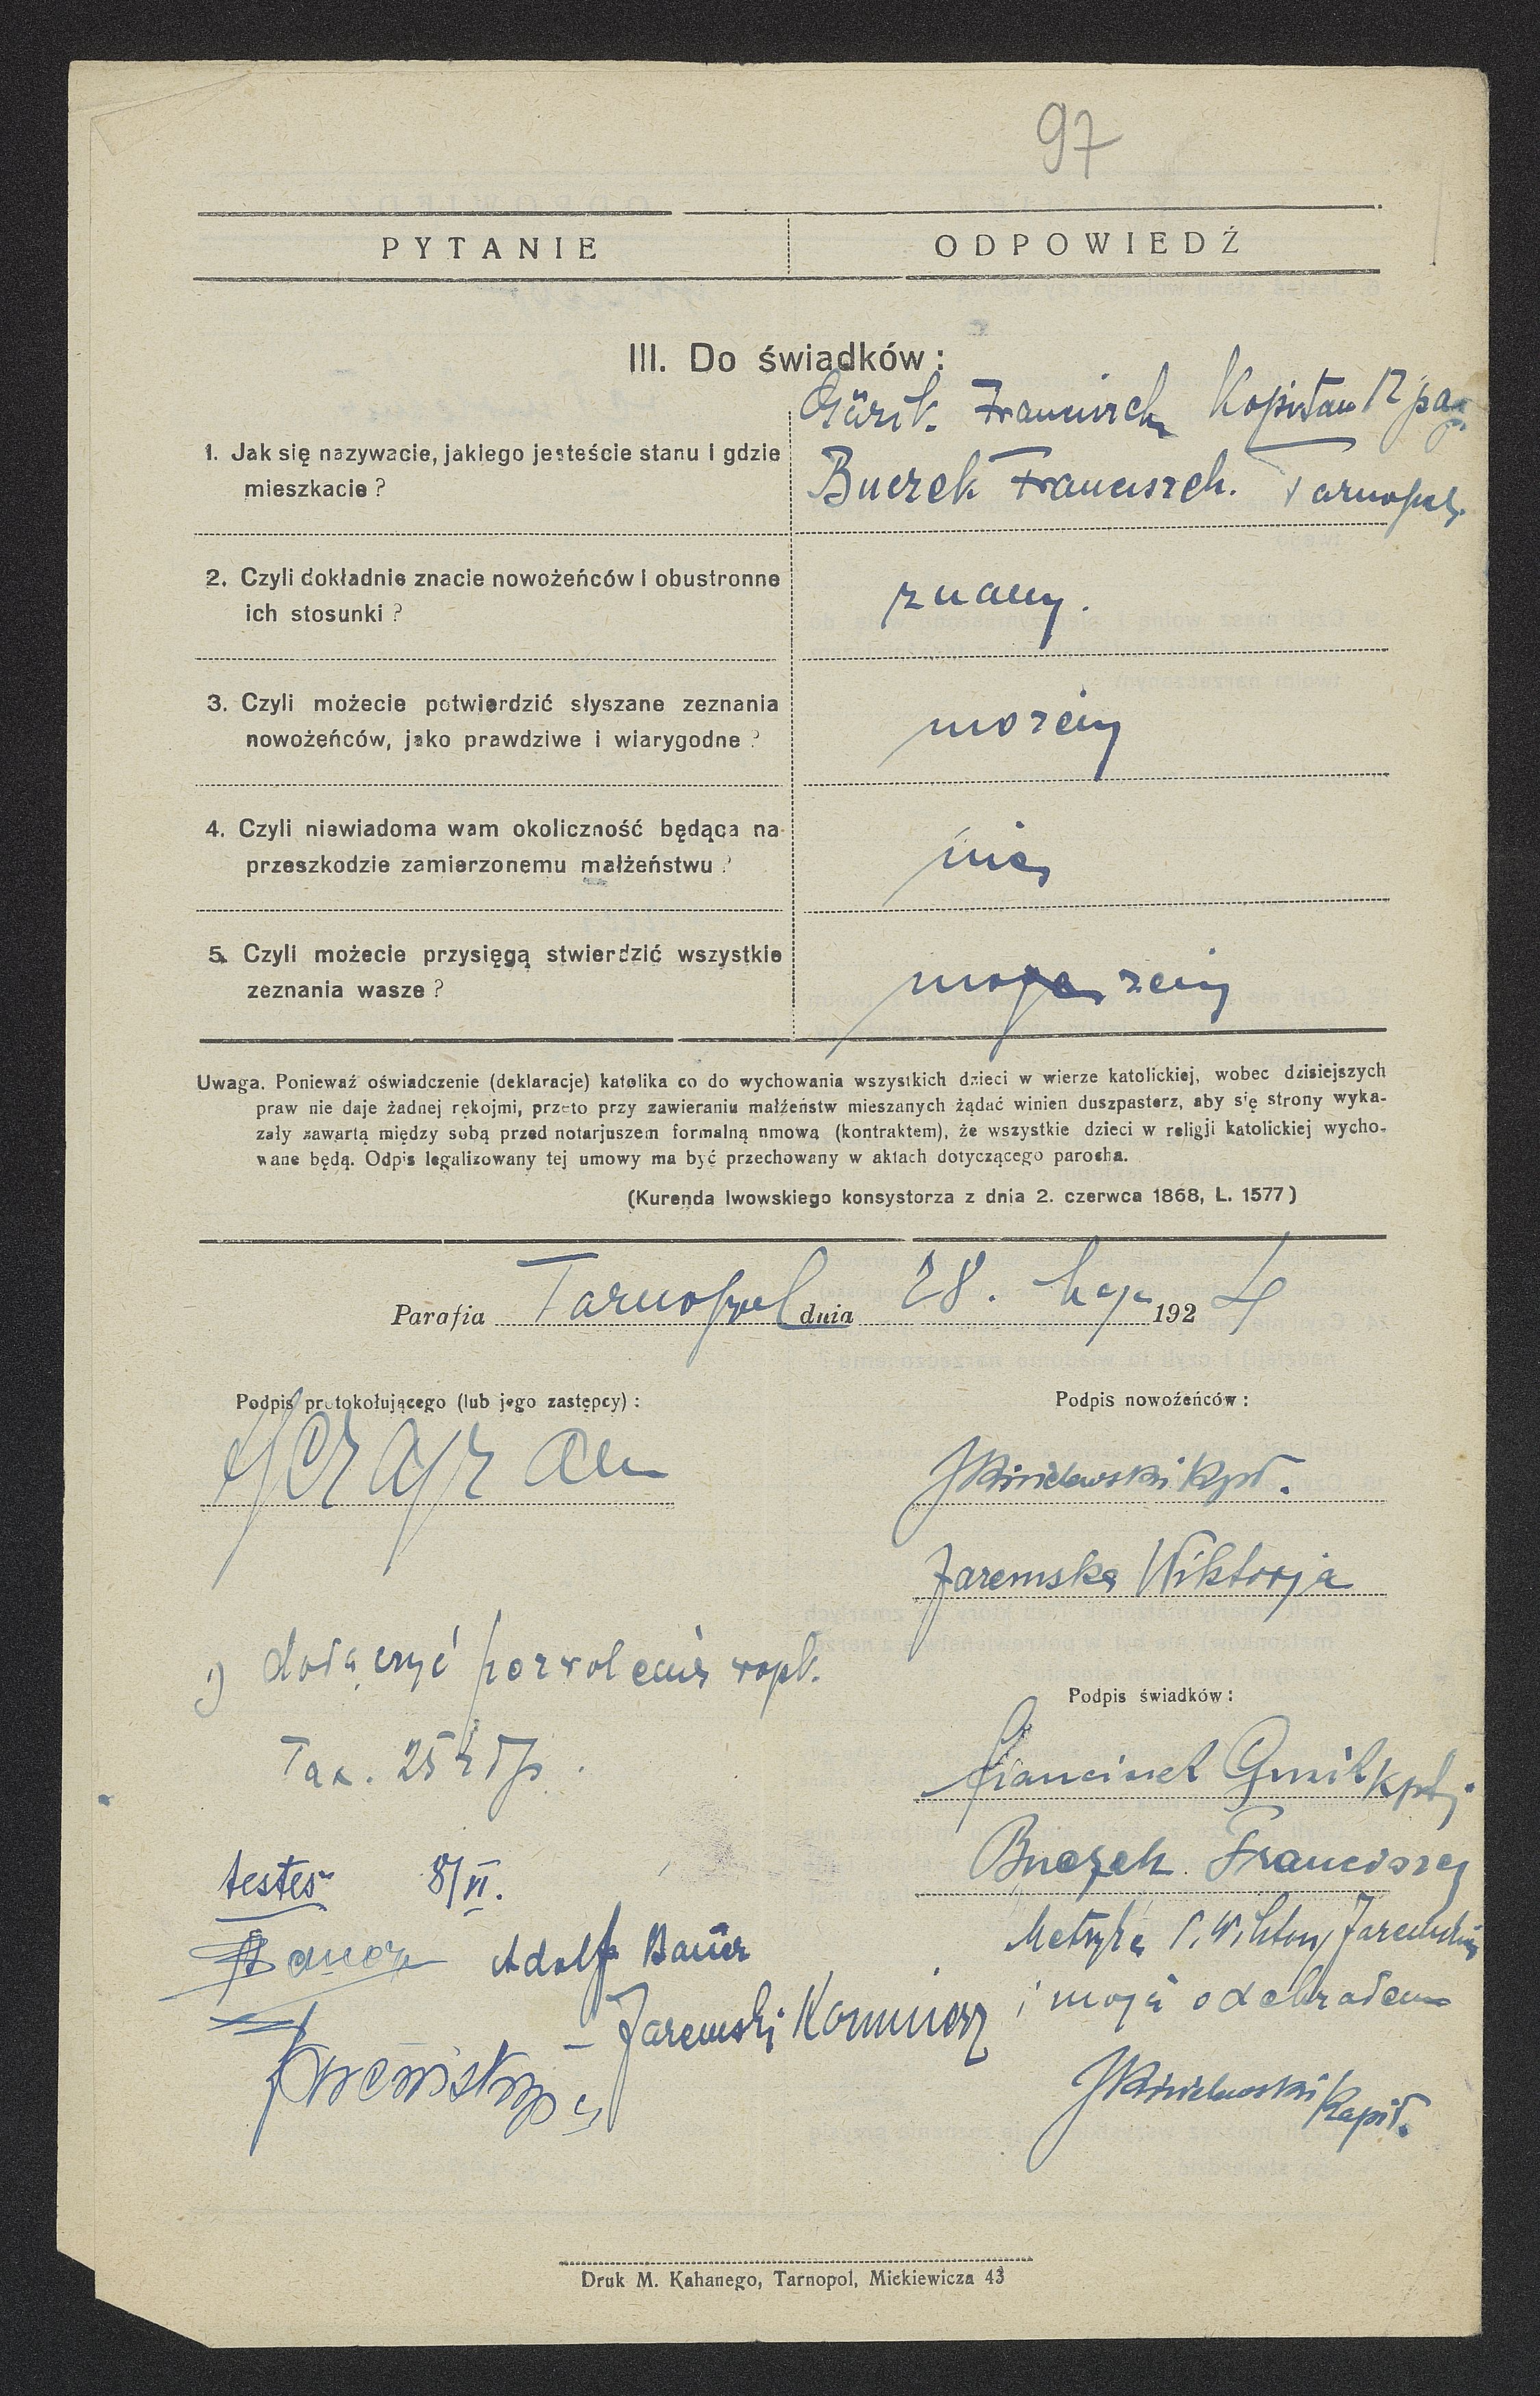 97
PYTANIE
ODPOWIEDŹ
III. Do świadków:
1. Jak się nazywacie, jakiego jesteście stanu i gdzie
mieszkacie?
Franciszek Kapitan 12 pa
Buczek Franciszek. Tarnopol.
2. Czyli dokładnie znacie nowożeńców i obustronne
ich stosunki?
znamy.
3. Czyli możecie potwierdzić słyszane zeznania
nowożeńców, jako prawdziwe i wiarygodne?
możemy
4. Czyli niewiadoma wam okoliczność będąca na
przeszkodzie zamierzonemu małżeństwu?
nie
5. Czyli możecie przysięgą stwierdzić wszystkie
zeznania wasze?
możemy
Uwaga. Ponieważ oświadczenie (deklaracje) katolika co do wychowania wszystkich dzieci w wierze katolickiej, wobec dzisiejszych
praw nie daje żadnej rękojmi, przeto przy zawieraniu małżeństw mieszanych żądać winien duszpasterz, aby się strony wyka-
zały zawartą między sobą przed notarjuszem formalną nmową (kontraktem), że wszystkie dzieci w religji katolickiej wycho-
wane będą. Odpis legalizowany tej umowy ma być przechowany w aktach dotyczącego parocha.
(Kurenda lwowskiego konsystorza z dnia 2. czerwca 1868, L. 1577)
Parafia Tarnopol dnia 28. Maja 1924
Podpis protokołującego (lub jego zastępcy):
Podpis nowożeńców:
JKisielewski kpt.
Jaremska Wiktorja
1) dołączyć pozwolenie
Podpis świadków:
Tax. 25 złp.
Franciszek kpt.
testes 8/VI.
Buczek Franciszek
Adolf Bauer
Metrykę P. Wiktorji Jaremskiej
i moją odebrałem
Jaremski Kazimierz
JKisielewski kapit.
Druk M. Kahanego, Tarnopol, Mickiewicza 43